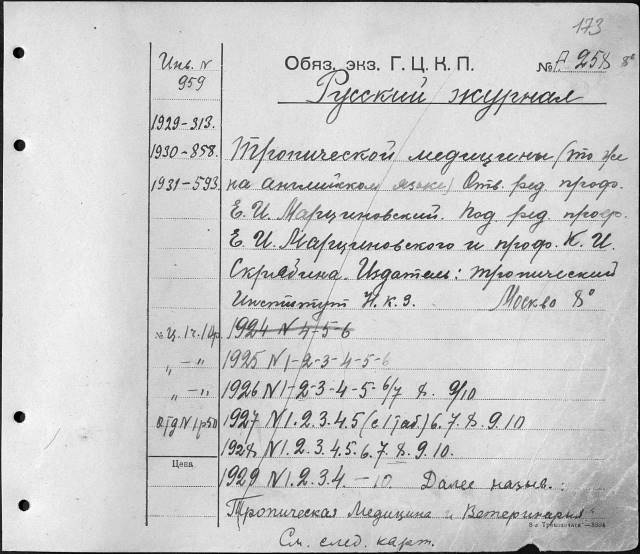 173
Инв. N
959
Обяз. экз. Г. Ц. К. П.
№ А 258 8°
Русский журнал
1929-313.
1930-858.
1931-593.
Тропической медицины (то же
на английском языке) Отв. ред. проф.
Е. И. Марциновский. Под ред. проф.
Е. И. Марциновского и проф. К. И.
Скрябина. Издатель: Тропический
Институт Н. К. З. Москва 8°
№ Ц. 1 ч. 10р.
1924 N 4-5-6
„ — "
1925 N 1-2-3-4-5-6
„ — "
1926 N 1-2-3-4-5-6/7 8. 9/10
отд N 1р50
1927 N 1. 2. 3. 4. 5 (с 1 таб.) 6. 7. 8. 9. 10
1928 N 1. 2. 3. 4. 5. 6. 7. 8. 9. 10.
Цена
1929 N 1. 2. 3. 4 — 10. Далее назыв.:
Тропическая Медицина и Ветеринария"
См. след. карт.